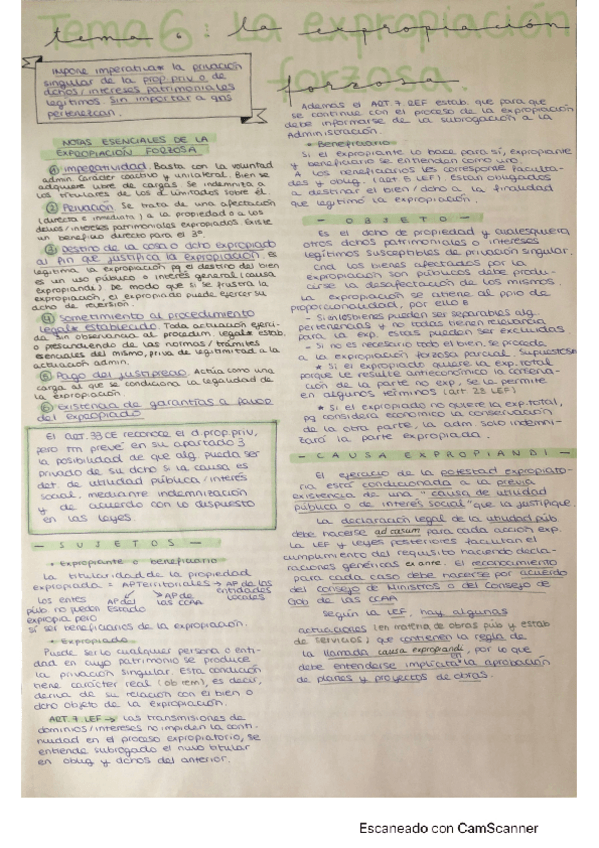 Tema 6: la expropiación
forzosa.
Impone imperativa* la privación
singular de la prop. priv o de
dchos/intereses patrimoniales
legítimos. Sin importar a qns
pertenezcan.
NOTAS ESENCIALES DE LA
EXPROPIACIÓN FORZOSA
① imperatividad. Basta con la voluntad
admin. Carácter coactivo y unilateral. Bien se
adquiere libre de cargas. Se indemniza a
los titulares de los d. limitados sobre él.
② Privación Se trata de una afectación
(directa e inmediata) a la propiedad o a los
dchos/intereses patrimoniales expropiados Existe
un beneficio directo para el 3º.
③ destino de la cosa o dcho expropiado
al fin que justifica la expropiación. es
legítima la expropiación pq el destino del bien
es un uso público o interés general (causa
expropiandi). De modo que si se frustra la
expropiación, el expropiado puede ejercer su
dcho de reversión.
④ sometimiento al procedimiento
legal* establecido. Toda actuación
da sin observancia al procedim. legal* estab.
o prescindiendo de las normas/trámites
esenciales del mismo, priva de legitimidad a la
actuación admin.
⑤ Pago del justiprecio. Actúa como una
carga al que se condiciona la legalidad de
la expropiación.
⑥ existencia de garantías a favor
del expropiado
El ART. 33 CE reconoce el d. prop. priv,
pero tm prevé en su apartado 3
la posibilidad de que alg. pueda ser
privado de su dcho si la causa es
det. de utilidad pública/interés
social, mediante indemnización
y de acuerdo con lo dispuesto
en las leyes.
— SUJETOS —
• Expropiante o beneficiario
La titularidad de la propiedad
expropiada = AP Territoriales → AP de las entidades locales
Los entes AP del Estado AP de las CCAA
púb no pueden
expropia pero
sí ser beneficiarios de la expropiación.
• Expropiado
Puede ser lo cualquier persona o enti-
dad en cuyo patrimonio se produce
la privación singular. Esta condición
tiene carácter real (ob rem), es decir,
deriva de su relación con el bien o
dcho objeto de la expropiación.
ART. 7 LEF → las transmisiones de
dominios/intereses no impiden la conti-
nuidad en el proceso expropiatorio, se
entiende subrogado el nuvo titular
en oblig y dchos del anterior.
Además el ART. 7 REF estab. que para que
se continue con el proceso de la expropiación
debe informarse de la subrogación a la
Administración.
• Beneficiario
Si el expropiante lo hace para sí, expropiante
y beneficiario se entienden como uno.
A los beneficiarios les corresponde faculta-
des y oblig. (art. 5 LEF) Están obligados
a destinar el bien/dcho a la finalidad
que legitimó la expropiación.
— OBJETO —
Es el dcho de propiedad y cualesquiera
otros dchos patrimoniales o intereses
legítimos susceptibles de privación singular.
Cnd los bienes afectados por la
expropiación son públicos debe produ-
cirse la desafectación de los mismos.
La expropiación se atiene al ppio de
proporcionalidad, por ello:
- Si en los bienes pueden ser separables alg.
pertenencias y no todas tienen relevancia
para la exp. estas pueden ser excluidas
- Si no es necesario todo el bien, se procede
a la expropiación forzosa parcial. Supuestos:
* Si el expropiado quiere la exp. total
porque le resulte antieconómico la
ción de la parte no exp, se la permite
en algunos términos (art. 23 LEF)
* Si el expropiado no quiere la exp. total,
pq considera económico la conservación
de la otra parte, la adm. solo indemni-
zará la parte expropiada.
— CAUSA EXPROPIANDI —
El ejercicio de la potestad expropiato-
ria está condicionada a la previa
existencia de una "causa de utilidad
pública o de interés social" que la justifique.
La declaración legal de la utilidad púb
debe hacerse ad casum para cada acción exp.
La LEF y leyes posteriores facilitan el
cumplimiento del requisito haciendo decla-
raciones genéricas ex ante. El reconocimiento
para cada caso debe hacerse por acuerdo
del Consejo de Ministros o del Consejo de
Gob de las CCAA
Según la LEF, hay algunas
actuaciones (en materia de obras púb y estab.
de servicios) que contienen la regla de
la llamada causa expropiandi, por lo que
debe entenderse implícita* en la aprobación
de planes y proyectos de obras.
Escaneado con CamScanner